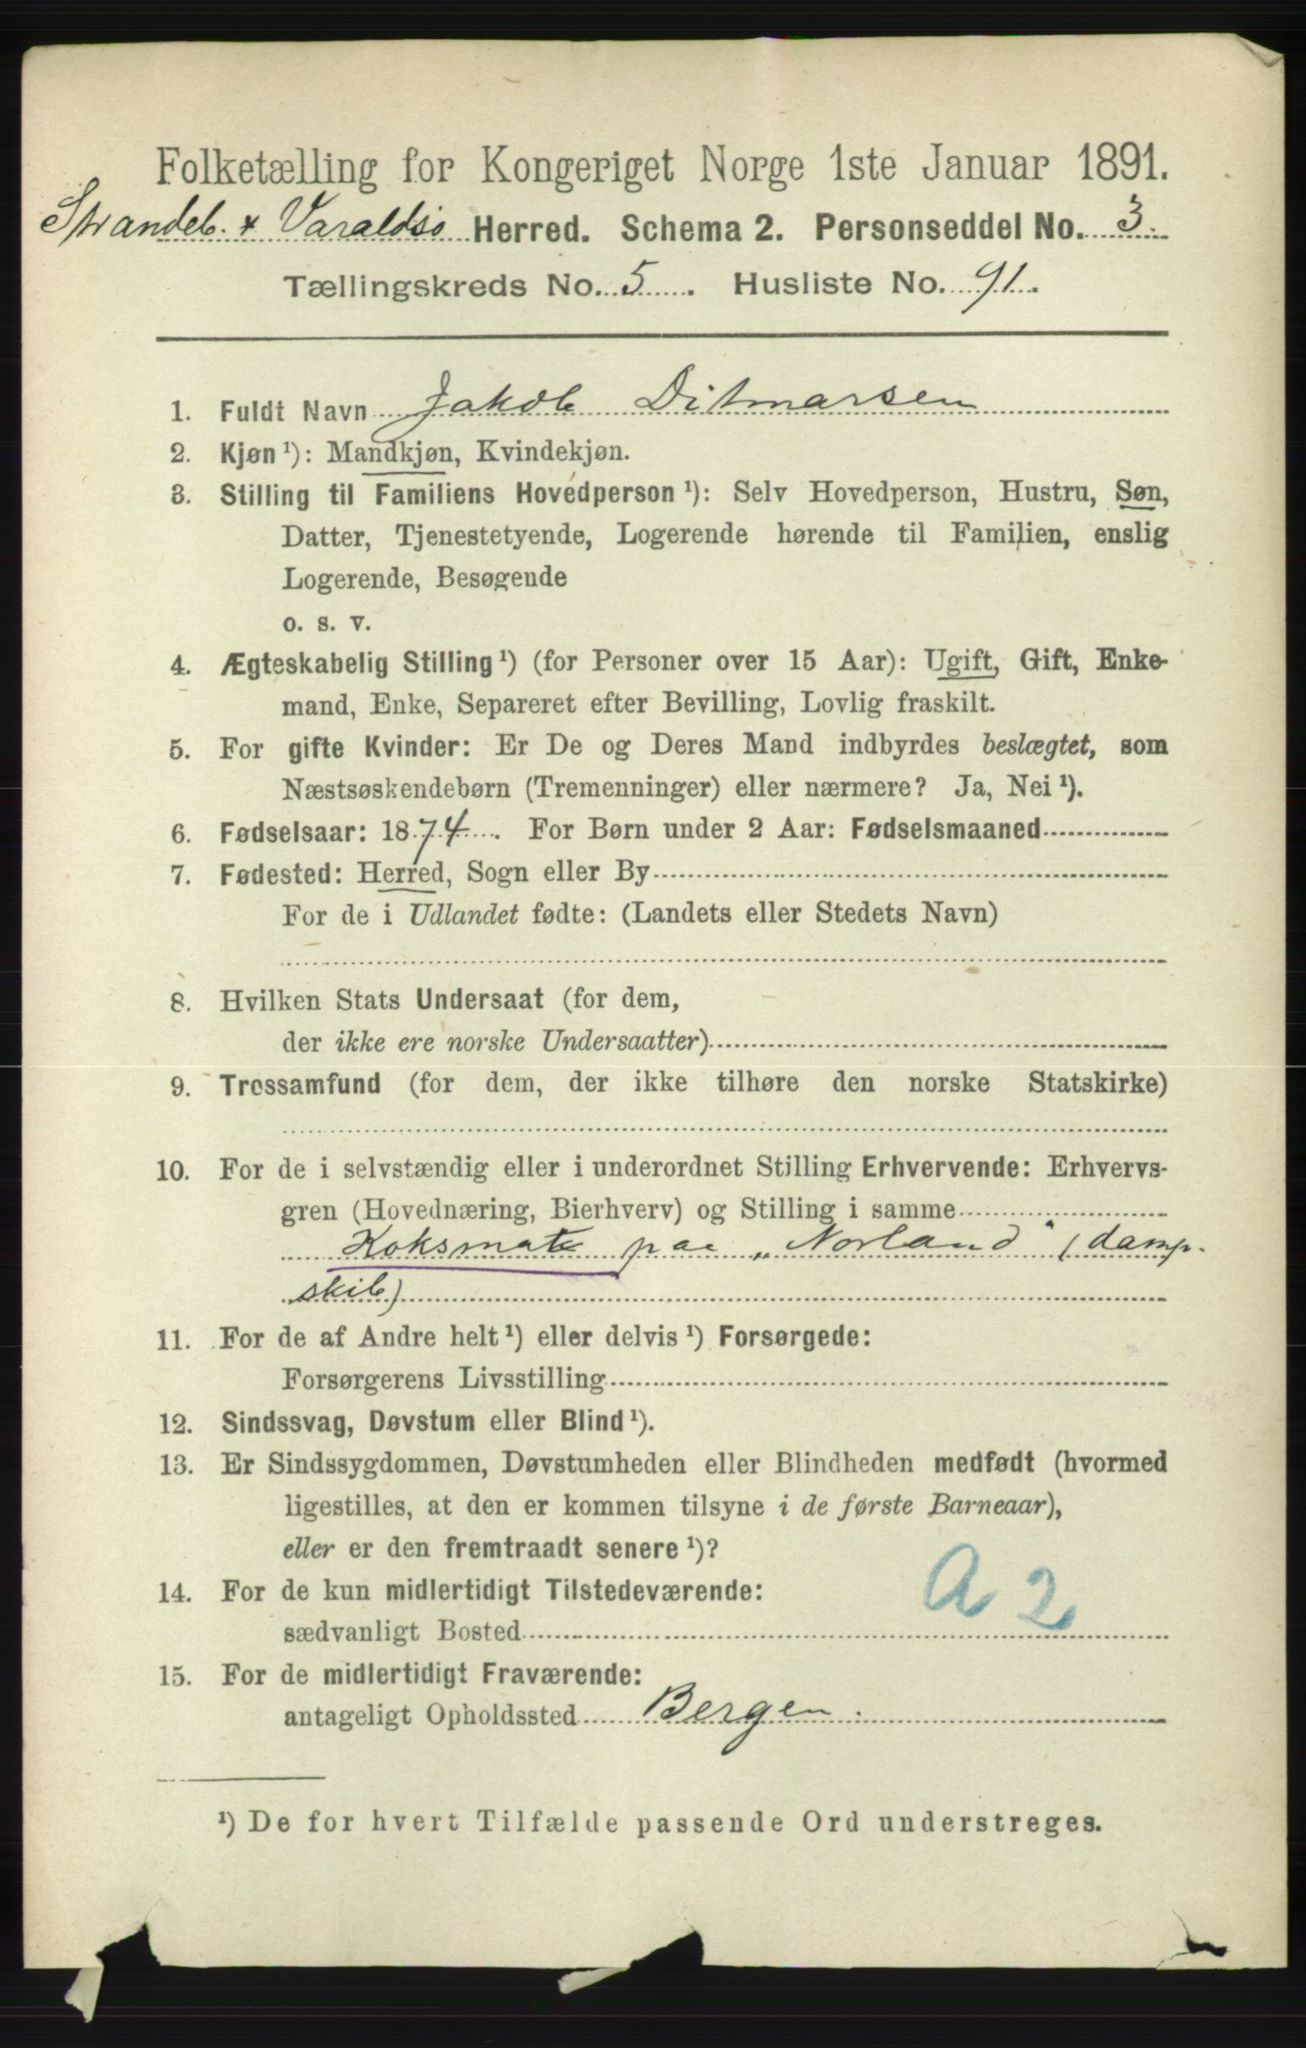 Folketælling for Kongeriget Norge 1ste Januar 1891.
Strandeb. + Varaldsö Herred. Schema 2. Personseddel No. 3.
Tællingskreds No. 5. Husliste No. 91.
1. Fuldt Navn Jakob Ditmarsen
2. Kjøn ¹): Mandkjøn, Kvindekjøn.
3. Stilling til Familiens Hovedperson ¹): Selv Hovedperson, Hustru, Søn,
Datter, Tjenestetyende, Logerende hørende til Familien, enslig
Logerende, Besøgende
o. s. v.
4. Ægteskabelig Stilling ¹) (for Personer over 15 Aar): Ugift, Gift, Enke-
mand, Enke, Separeret efter Bevilling, Lovlig fraskilt.
5. For gifte Kvinder: Er De og Deres Mand indbyrdes beslægtet, som
Næstsøskendebørn (Tremenninger) eller nærmere? Ja, Nei ¹).
6. Fødselsaar: 1874. For Børn under 2 Aar: Fødselsmaaned
7. Fødested: Herred, Sogn eller By
For de i Udlandet fødte: (Landets eller Stedets Navn)
8. Hvilken Stats Undersaat (for dem,
der ikke ere norske Undersaatter)
9. Trossamfund (for dem, der ikke tilhøre den norske Statskirke)
10. For de i selvstændig eller i underordnet Stilling Erhvervende: Erhvervs-
gren (Hovednæring, Bierhverv) og Stilling i samme
Koksmat paa „Norland" (damp-
skib)
11. For de af Andre helt ¹) eller delvis ¹) Forsørgede:
Forsørgerens Livsstilling
12. Sindssvag, Døvstum eller Blind ¹).
13. Er Sindssygdommen, Døvstumheden eller Blindheden medfødt (hvormed
ligestilles, at den er kommen tilsyne i de første Barneaar),
eller er den fremtraadt senere ¹)?
14. For de kun midlertidigt Tilstedeværende:
sædvanligt Bosted
A 2
15. For de midlertidigt Fraværende:
antageligt Opholdssted Bergen.
¹) De for hvert Tilfælde passende Ord understreges.